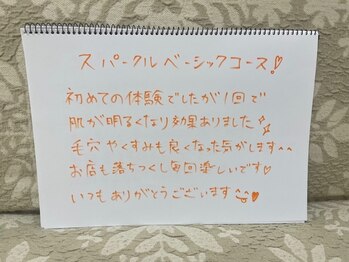 スパークルベーシックコース!♡
初めての体験でしたが1回で
肌が明るくなり効果ありました✨
毛穴やくすみも良くなった気がします^^
お店も落ちつくし毎回楽しいです♡
いつもありがとうございます^^♡